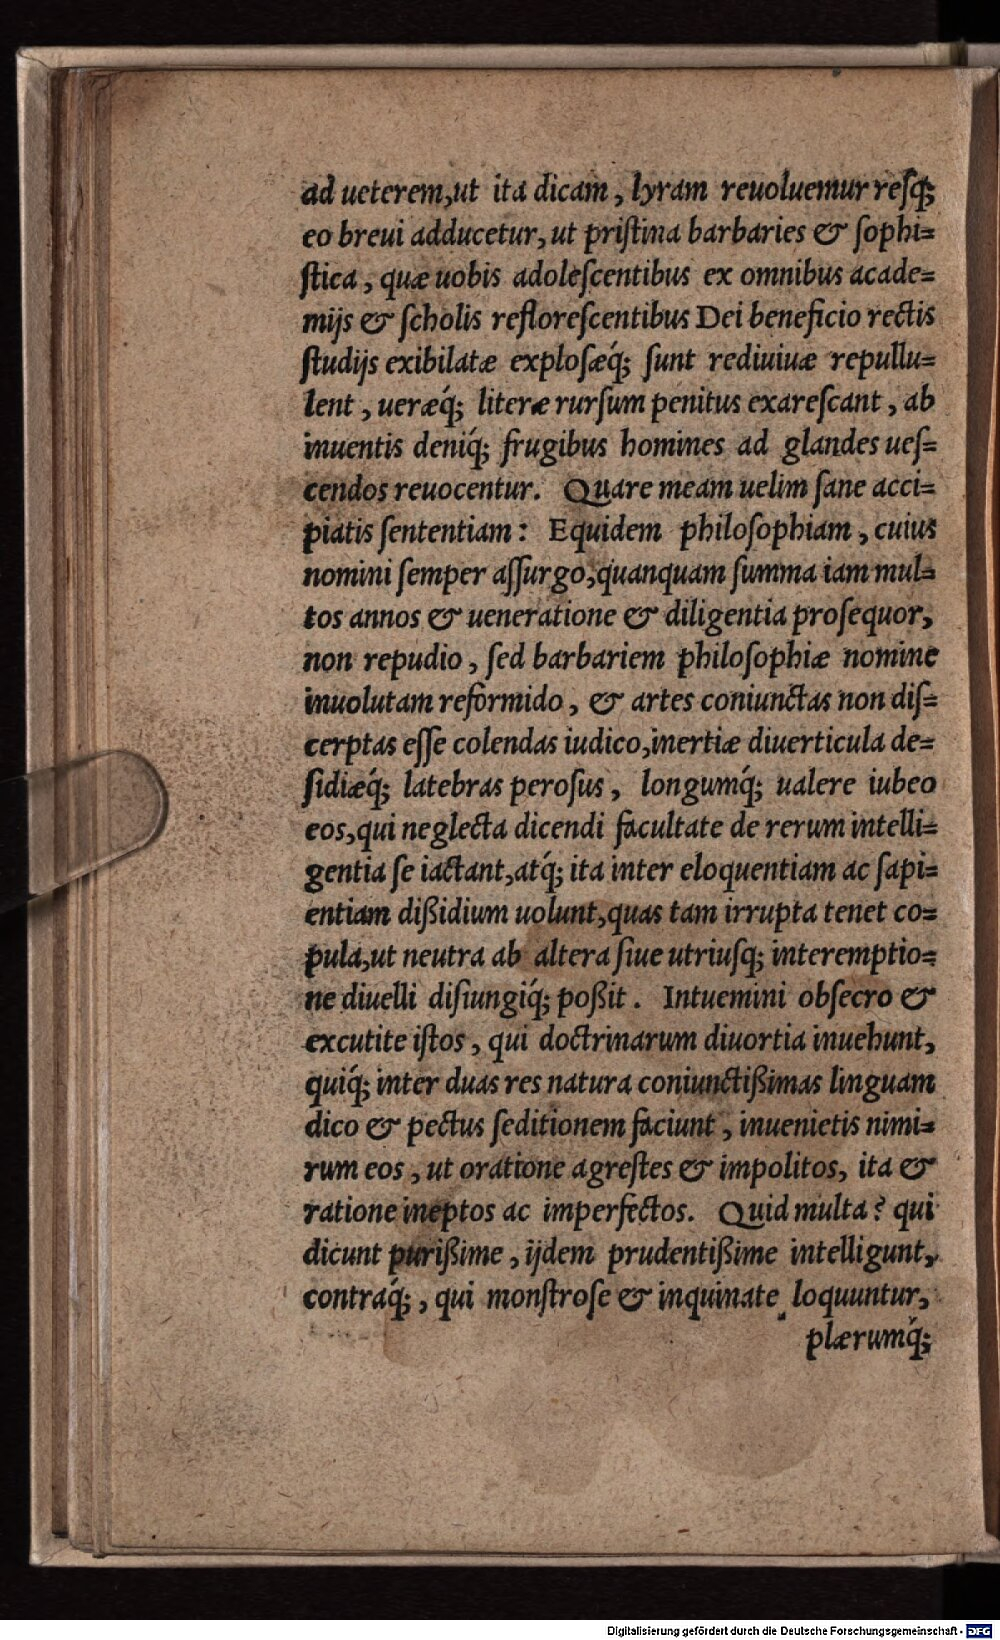 ad ueterem,ut ita dicam, lyram reuoluemur resq́;
eo breui adducetur, ut priſtina barbaries & ſophi=
ſtica, quæ uobis adoleſcentibus ex omnibus acade=
mijs & ſcholis refloreſcentibus Dei beneficio rectis
ſtudijs exibilatæ exploſæq́; ſunt rediuiuæ repullu=
lent, ueræq́; literæ rurſum penitus exareſcant, ab
inuentis deniq́; frugibus homines ad glandes ueſ=
cendos reuocentur. Quare meam uelim ſane acci=
piatis ſententiam: Equidem philoſophiam, cuius
nomini ſemper aſſurgo,quanquam ſumma iam mul=
tos annos & ueneratione & diligentia proſequor,
non repudio, ſed barbariem philoſophiæ nomine
inuolutam reformido, & artes coniunctas non diſ=
cerptas eſſe colendas iudico,inertiæ diuerticula de=
ſidiæq́; latebras peroſus, longumq́; ualere iubeo
eos,qui neglecta dicendi facultate de rerum intelli=
gentia ſe iactant,atq́; ita inter eloquentiam ac ſapi=
entiam dißidium uolunt,quas tam irrupta tenet co=
pula,ut neutra ab altera ſiue utriuſq; interemptio=
ne diuelli diſiungiq́; poßit. Intuemini obſecro &
excutite iſtos, qui doctrinarum diuortia inuehunt,
quiq́; inter duas res natura coniunctißimas linguam
dico & pectus ſeditionem faciunt, inuenietis nimi=
rum eos, ut oratione agreſtes & impolitos, ita &
ratione ineptos ac imperfectos. Quid multa? qui
dicunt purißime, ijdem prudentißime intelligunt,
contraq́;, qui monſtroſe & inquinate loquuntur,
plærumq́;
Digitalisierung gefördert durch die Deutsche Forschungsgemeinschaft - DFG